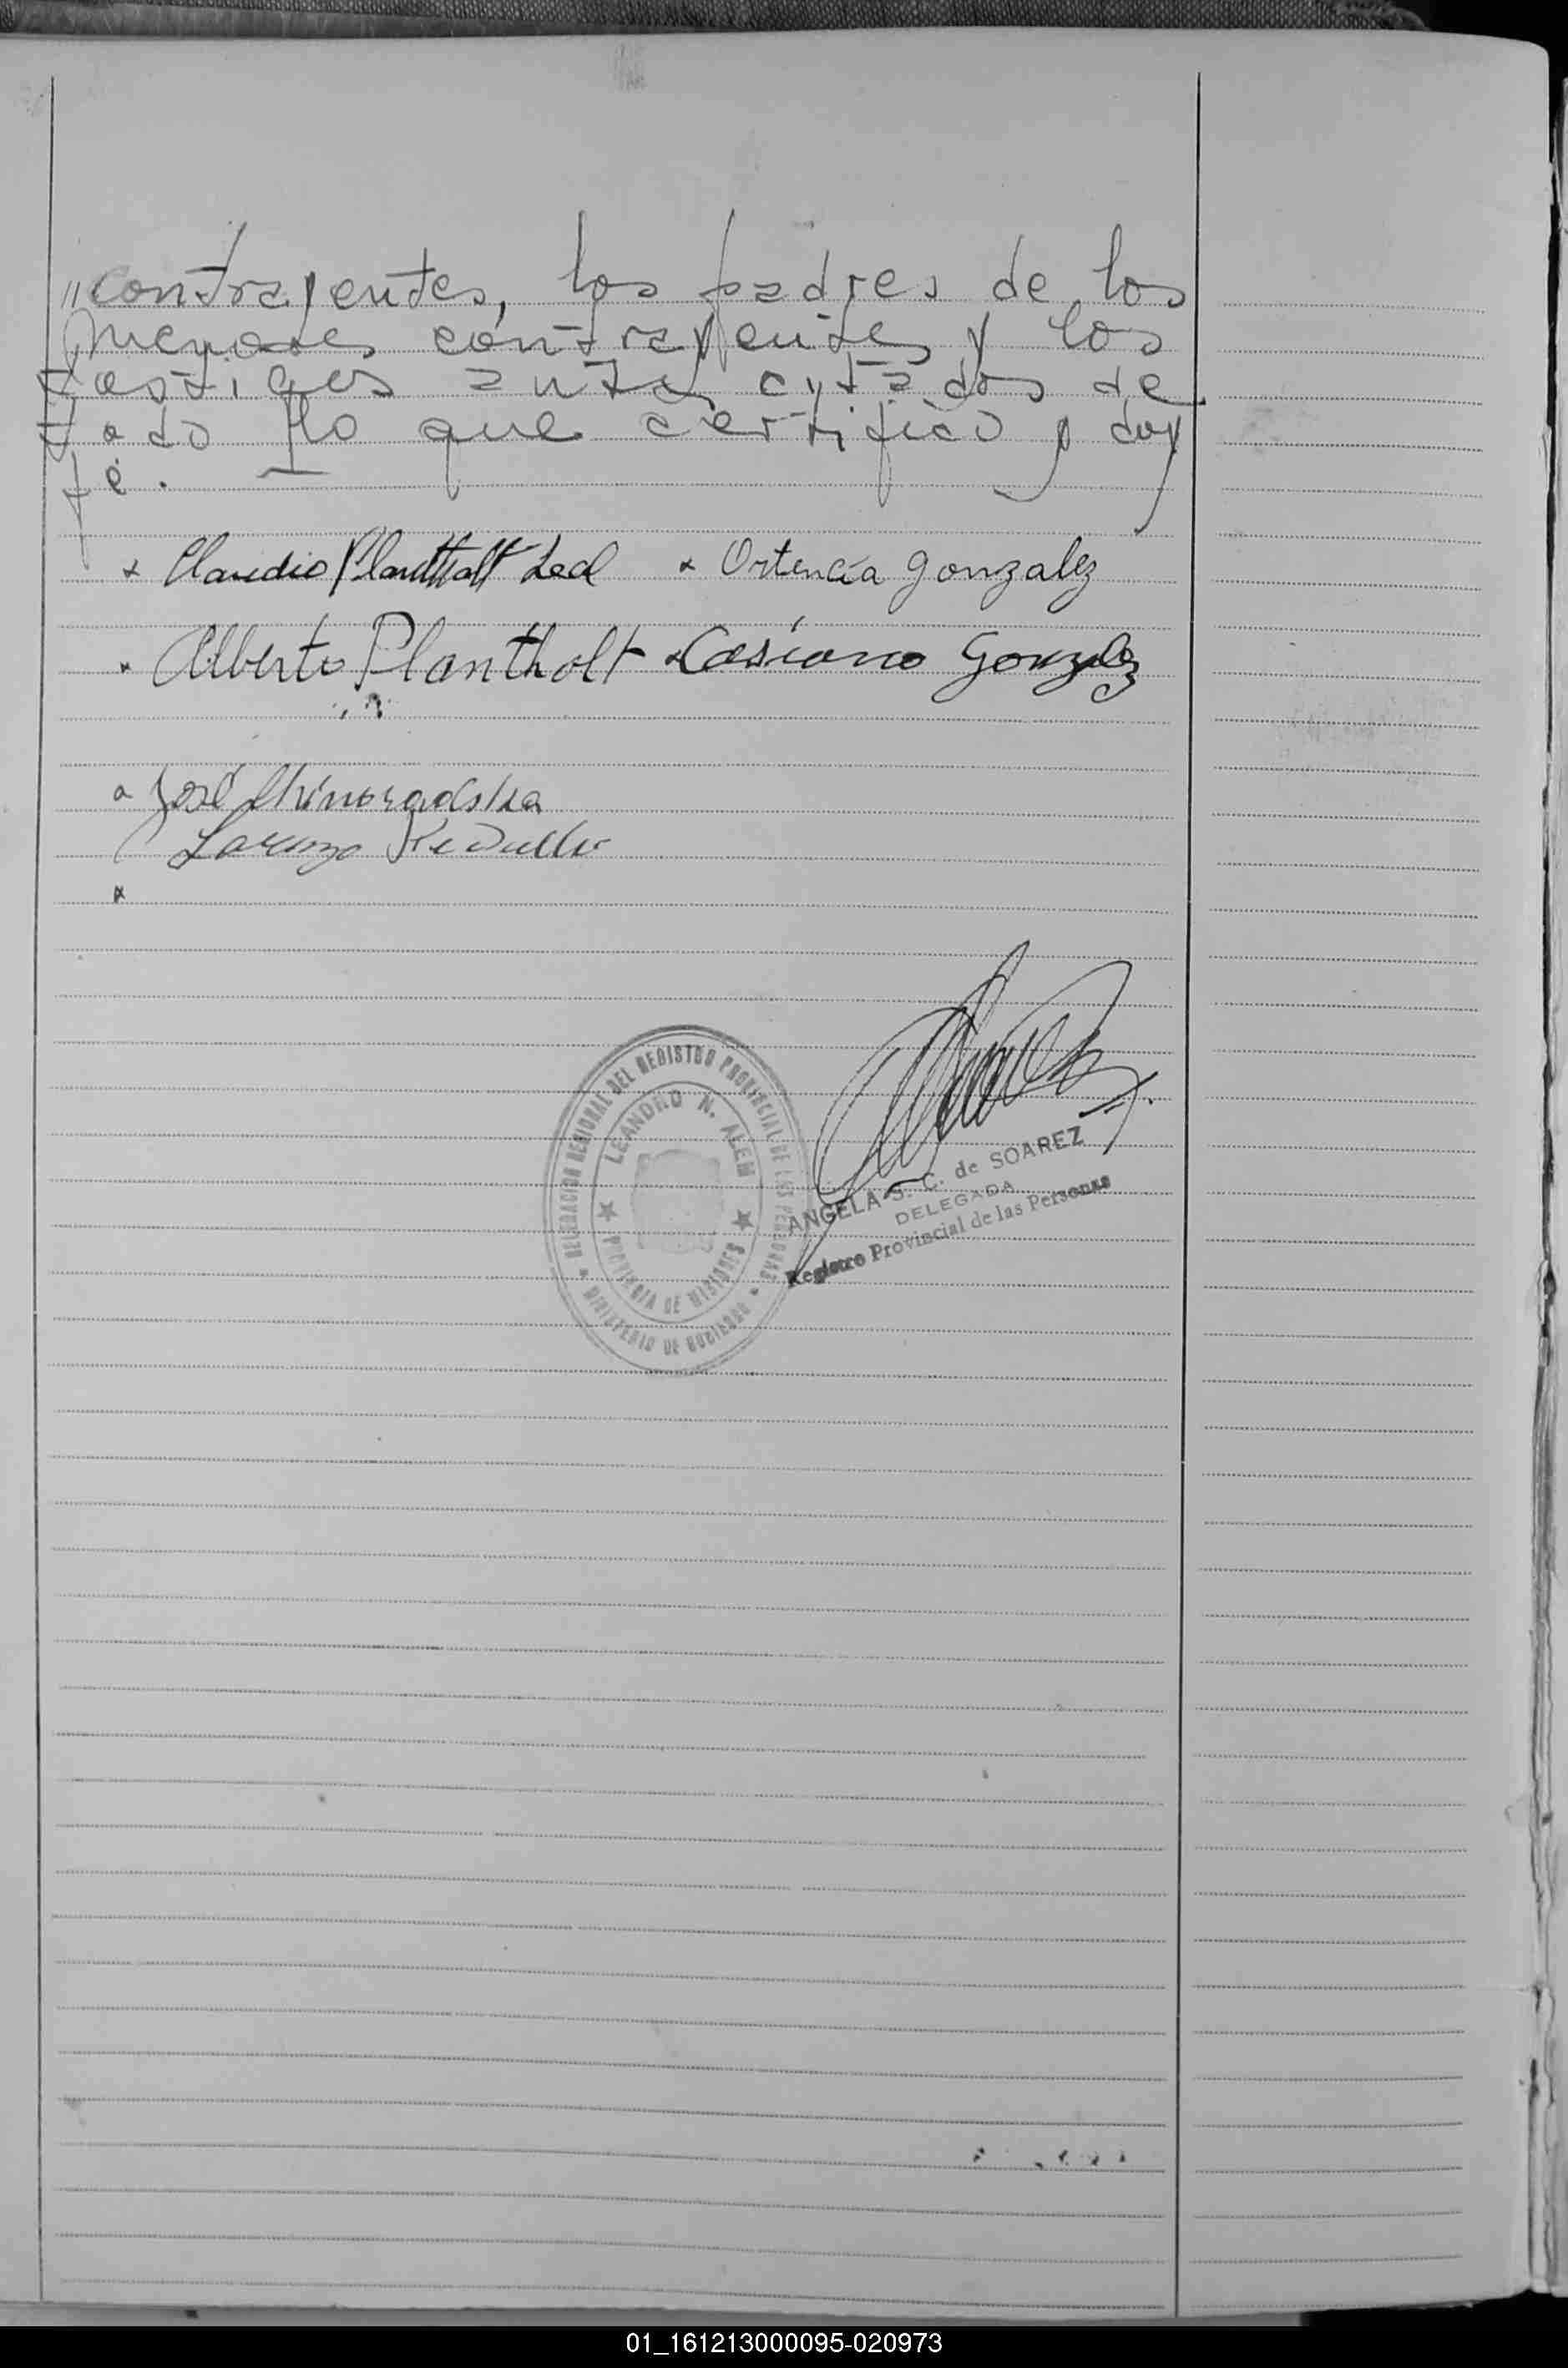 "contrayentes, los padres de los
menores contrayentes y los
testigos antes citados de
todo lo que certifico y doy
fé. —
x Claudio Plantholt Leal x Ortencia gonzalez
x Alberto Plantholt x Casiano Gonzalez
x José
Lorenzo
x
DELEGACION REGIONAL DEL REGISTRO PROVINCIAL DE LAS PERSONAS
LEANDRO N. ALEM
PROVINCIA DE MISIONES
MINISTERIO DE GOBIERNO
ANGELA S. C. de SOAREZ
DELEGADA
Registro Provincial de las Personas
01_161213000095-020973